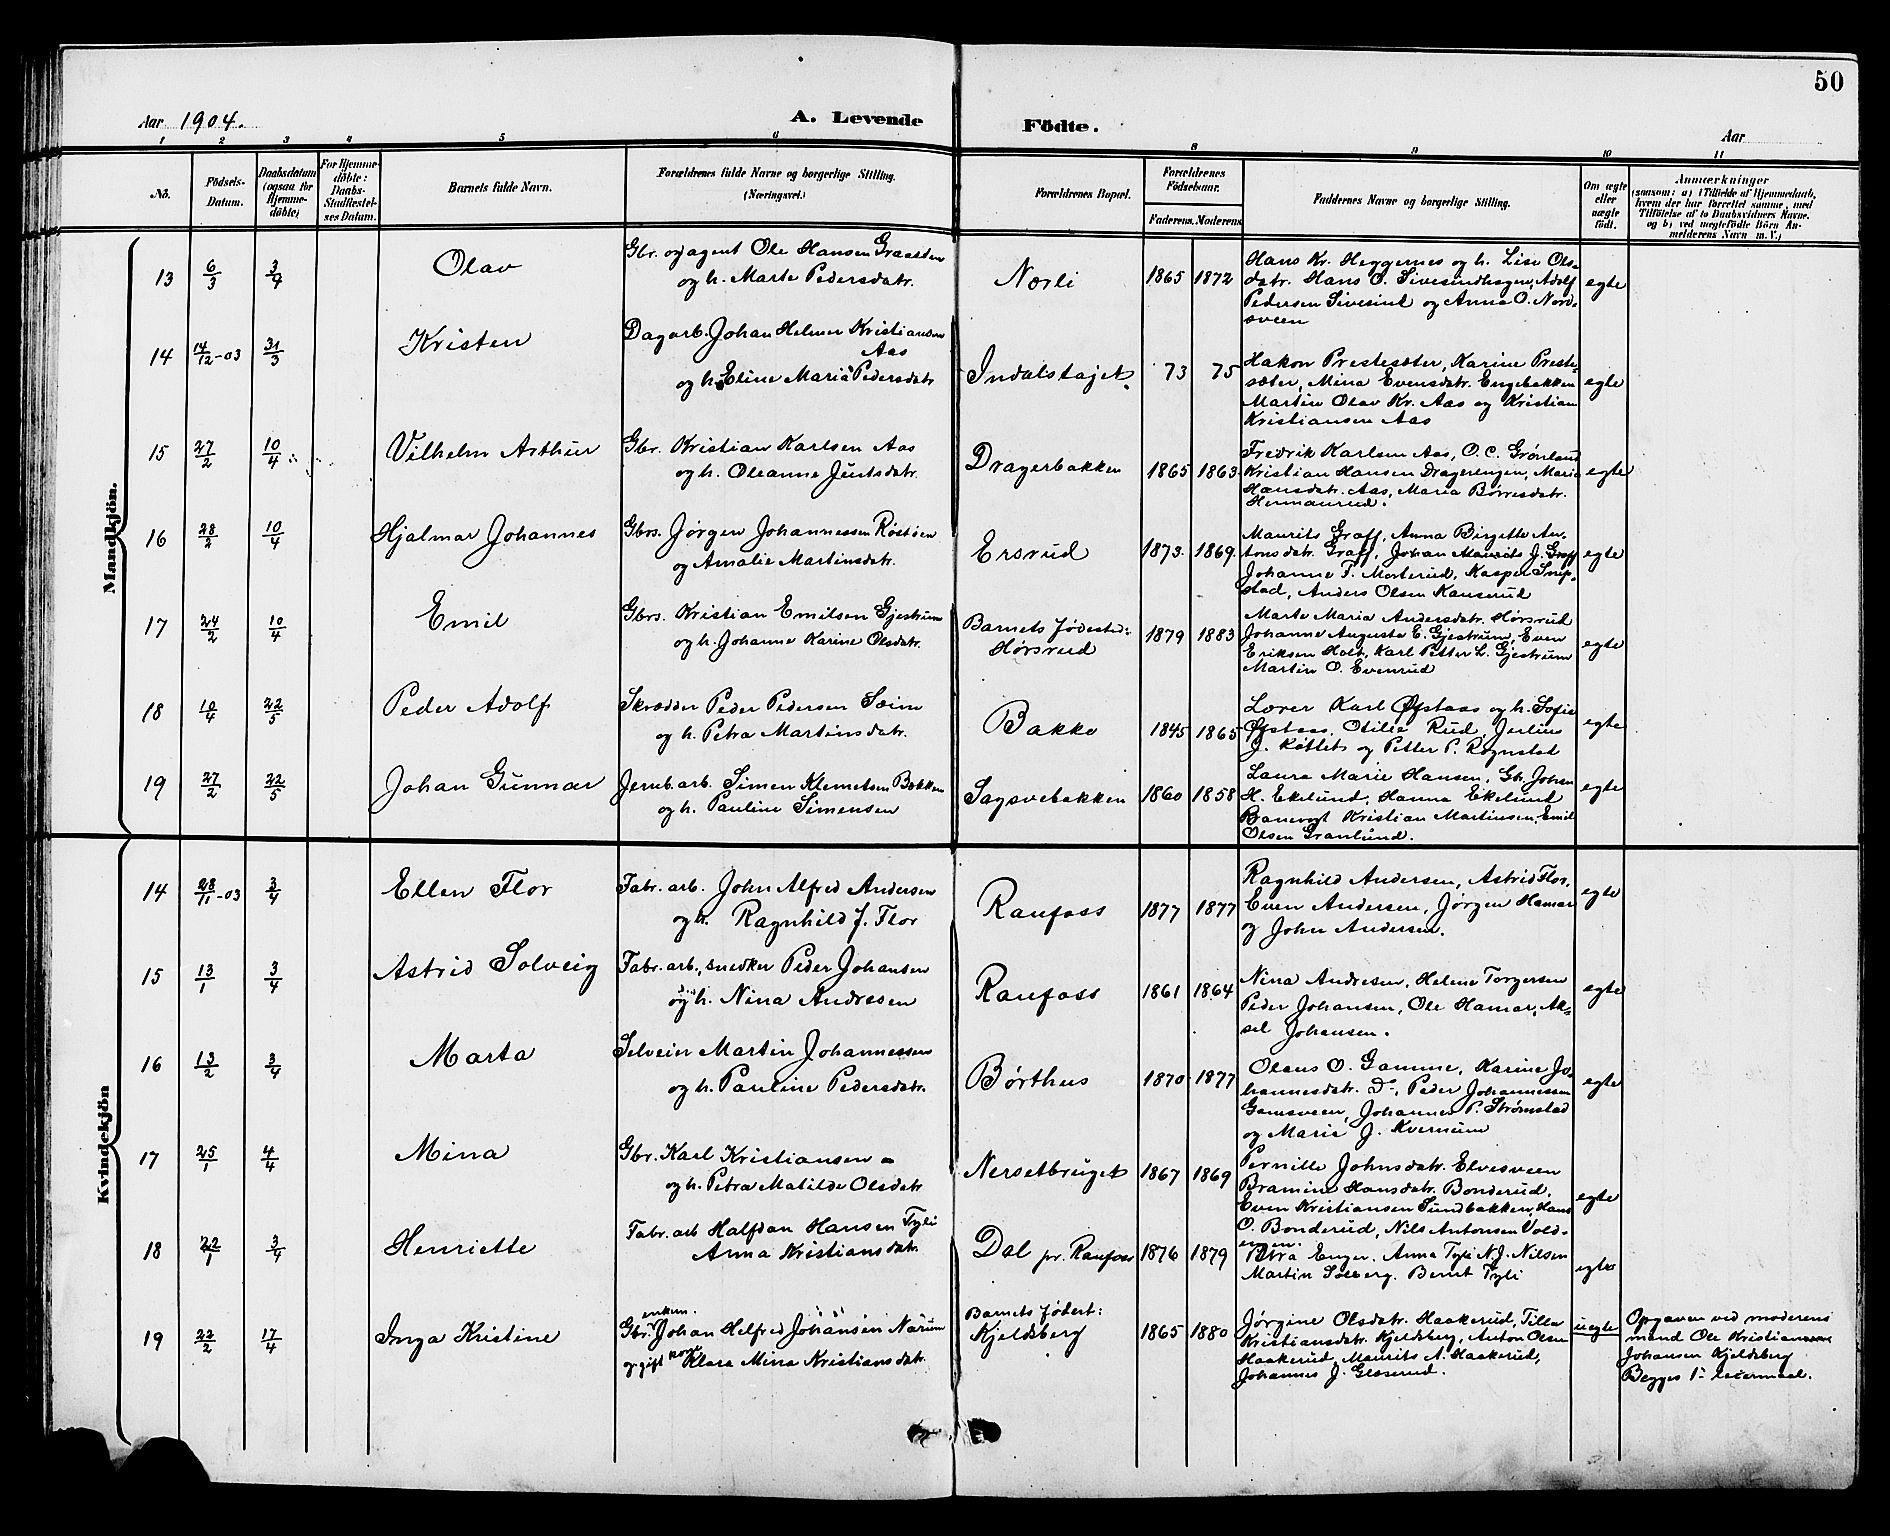 50
Aar 1904.
A. Levende Födte.
Aar
1 2 3 4 5 6 8 9 10 11
No.
Födsels-Datum.
Daabsdatum (ogsaa for Hjemmedöbte)
For Hjemmedöbte: Daabs-Stadfæstelses Datum.
Barnets fulde Navn.
Forældrenes fulde Navne og borgerlige Stilling.
(Næringsvei.)
Forældrenes Bopæl.
Forældrenes Födselsaar.
Faderens. Moderens.
Faddernes Navne og borgerlige Stilling.
Om ægte eller uægte födt.
Anmærkninger
(saasom: a) i Tilfælde af Hjemmedaab,
hvem der har forrettet samme, med
Tilföielse af to Daabsvidners Navne.
og b) ved uægtefödte Börn An-
melderens Navn m. V.)
Mandkjön.
13 6/3 3/4 Olav
Gbr. og agent Ole Hansen Graasten
og h. Marte Pedersdatr.
Nærli 1865 1872
Hans Kr. Heggernes og h. Lise Ols-
datr. Hans O. Sivesindhagen, Adolf
Pedersen Sivesind og Anna O. Nord-
sveen
egte
14 14/12-03 31/3 Kristen
Dagarb. Johan Helmer Kristiansen
Aas
og h. Eline Maria Pedersdatr
Indalstajet 73 75
Hakon Prestesæter, Karine Preste-
sæter, Mina Evensdatr. Engebakken
Martin Olav Kr. Aas og Kristian
Kristiansen Aas
egte
15 27/2 10/4 Vilhelm Arthur
Gbr. Kristian Karlsen Aas
og h. Oleanne Juulsdatr.
Dragerbakken 1865 1863
Fredrik Karlsen Aas, O. C. Grønlund
Kristian Hansen Dragerengen, Maria
Hansdatr. Aas, Maria Børresdatr.
Hermanrud.
egte
16 28/2 10/4 Hjalmar Johannes
Gbrs. Jørgen Johannessen Røstøen
og Amalie Martinsdatr.
Ersrud 1873. 1869.
Maurits Graff, Anna Birgitte An-
tonsdatr. Graff, Johan Maurits J. Graff
Johanne F. Morterud, Kasper Snip-
stad, Anders Olsen Kanserud
egte
17 24/2 10/4 Emil
Gbrs. Kristian Emilsen Gjestrum
og h. Johanne Karine Olsdatr.
Barnets fødested:
Hørsrud 1879 1883
Marte Maria Andersdatr. Hørsrud
Johanne Auguste E. Gjestrum, Even
Eriksen Holt, Karl Petter L. Gjestrum
Martin O. Evenrud
egte
18 10/4 22/5 Peder Adolf
Skrædder Peder Pedersen Sæim
og h. Petra Martinsdatr.
Bakke 1845 1865
Lærer Karl Øfstaas og h. Sofie
Øfstaas, Otilie Rud, Julius
J. Køttet og Petter P. Røgnstad
egte
19 27/2 22/5 Johan Gunnar
Jernb. arb. Simen Klemetsen Bakken
og h. Pauline Simensen
Sagsvebakken 1860 1858
Laura Marie Hansen, Gb. Johan
H. Ekelund, Hanna Ekelund
Banevogt Kristian Martinsen, Emil
Olsen Granlund.
egte
Kvindekjön
14 28/11-03 3/4 Ellen Flor
Fabr. arb. John Alfred Andersen
og h. Ragnhild J. Flor
Raufoss 1877 1877
Ragnhild Andersen, Astrid Flor,
Even Andersen, Jørgen Hamar
og John Andersen.
egte
15 13/1 3/4 Astrid Solveig
Fabr. arb., snedker Peder Johansen
og h. Nina Andresen
Raufoss 1861 1864
Nina Andresen, Helene Torgersen
Peder Johansen, Ole Hamar, Ak-
sel Johansen.
egte
16 13/2 3/4 Marta
Selveier Martin Johannessen
og h. Pauline Pedersdatr.
Børthus 1870 1877
Olaus O. Gamme, Karine Jo-
hannesdatr. Do, Peder Johannessen
Gamsveen, Johannes P. Strømstad
og Marie J. Kvernum
egte
17 25/1 4/4 Mina
Gbr. Karl Kristiansen
og h. Petra Matilde Olsdatr
Nersetbruget 1867 1869
Pernille Johnsdatr. Elvesveen
Bramine Hansdatr. Bonderud,
Even Kristiansen Sundbakken, Hans
O. Bonderud, Nils Antonsen Vold-
engen.
egte
18 22/1 3/4 Henriette
Fabr. arb Halfdan Hansen Tyli
Anna Kristiansdatr.
Dal pr. Raufoss 1876 1879
Petra Enger, Anna Tyli N. J. Nilsen
Martin Solberg. Bernt Tyli
egte
19 22/2 17/4 Inga Kristine
enkem.
Gbr. Johan Helfred Johansen Narum
og gift kone Klara Mina Kristiansdatr.
Barnets fødest:
Kjeldsberg 1865 1880
Jørgine Olsdatr. Haakerud, Tilla
Kristiansdatr. Kjeldsberg, Anton Olsen
Haakerud, Maurits A. Haakerud,
Johannes J. Glæserud.
uegte
Opgaven ved moderens
mand Ole Kristian
Johansen Kjeldsberg
Begges 1ste leiermaal.